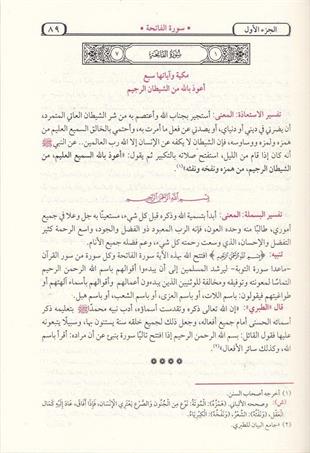 الجزء الأول
* سورة الفاتحة *
٨٩
١
سورة الفاتحة
٧
مكية وآياتها سبع
أعوذ بالله من الشيطان الرجيم
تفسير الاستعاذة: المعنى: أستجير بجناب الله وأعتصم به من شر الشيطان العاتي المتمرد،
أن يضرني في ديني أو دنياي، أو يصدني عن فعل ما أمرت به، وأحتمي بالخالق السميع العليم من
همزه ولمزه ووساوسه، فإن الشيطان لا يكفه عن الإنسان إلا الله رب العالمين.. عن النبي ﷺ
أنه كان إذا قام من الليل، استفتح صلاته بالتكبير ثم يقول: «أعوذ بالله السميع العليم، من
الشيطان الرجيم، من همزه ونفخه ونفثه»(١).
بسم الله الرحمن الرحيم
تفسير البسملة: المعنى: أبدأ بتسمية الله وذكره قبل كل شيء، مستعينًا به جل وعلا في جميع
أموري، طالبًا منه وحده العون، فإنه الرب المعبود ذو الفضل والجود، واسع الرحمة كثير
التفضل والإحسان، الذي وسعت رحمته كل شيء، وعم فضله جميع الأنام.
تنبيه: ﴿بسم الله الرحمن الرحيم﴾ افتتح الله بهذه الآية سورة الفاتحة وكل سورة من سور القرآن
-ماعدا سورة التوبة- ليرشد المسلمين إلى أن يبدءوا أقوالهم باسم الله الرحمن الرحيم
التماسًا لمعونته وتوفيقه ومخالفة للوثنيين الذين يبدءون أعمالهم وأقوالهم بأسماء آلهتهم أو
طواغيتهم فيقولون: باسم اللات، أو باسم العزى، أو باسم الشعب، أو باسم هبل.
قال «الطبري»: «إن الله تعالى ذكره وتقدست أسماؤه، أدب نبيه محمدًا ﷺ بتعليمه ذكر
أسمائه الحسنى أمام جميع أفعاله، وجعل ذلك لجميع خلقه سنة يستنون بها، وسبيلًا يتبعونه
عليها فقول القائل: بسم الله الرحمن الرحيم إذا افتتح تاليًا سورة ينبئ عن أن مراده: أقرأ باسم
الله، وكذلك سائر الأفعال»(٢).
* * * *
(١) أخرجه أصحاب السنن.
(ش): وصححه الألباني. (همزه): الموتة: نوع من الجنون والصرع يعتري الإنسان، فإذا أفاق، عاد إليه كمال
العقل، (ونفثه): الشعر، (ونفخه): الكبرياء.
(٢) «جامع البيان للطبري.